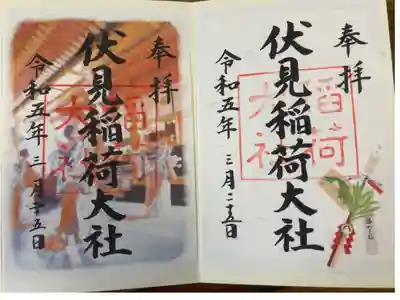 奉拝
伏見稲荷大社
令和五年 三月二十五日
稲荷
大社
奉拝
伏見稲荷大社
令和五年 三月二十五日
稲荷
大社